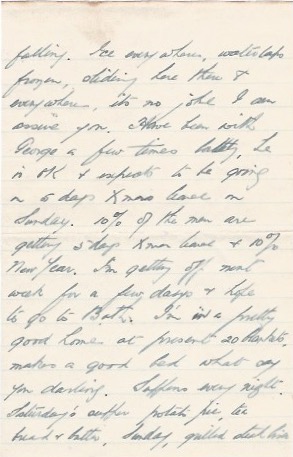 falling. Ice everywhere, watertaps
frozen, sliding here there &
everywhere, it's no joke I can
assure you. Have been with
George a few times lately, he
is OK & expects to be going
on 5 days Xmas leave on
Sunday. 10% of the men are
getting 5 days Xmas leave & 10%
New Year. I'm getting off next
week for a few days & hope
to go to Bath. I'm in a pretty
good home at present 20 blankets
makes a good bed what say
you darling. Suppers every night
Saturday's supper potato pie, tea
bread & butter, Sunday, grilled steak